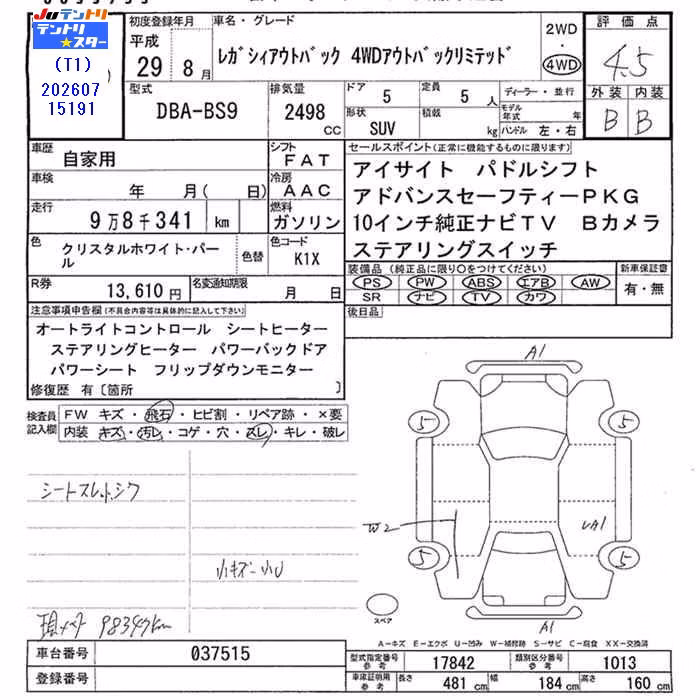 Juテントリ
テントリ
★スター
(T1)
202607
15191
初度登録年月
平成
29 8月
車名・グレード
レガシィアウトバック 4WDアウトバックリミテッド
2WD
・
4WD
評価点
4.5
外装 内装
B B
型式
DBA-BS9
排気量
2498
CC
ドア 5
定員 5 人
形状 SUV
積載 kg
ディーラー・並行
モデル年式 年式
ハンドル 左・右
車歴 自家用
シフト FAT
車検 年 月( 日)
冷房 AAC
走行 9万8千341 km
燃料 ガソリン
色 クリスタルホワイト・パール
色替
色コード K1X
R券 13,610円
名変通知期限 月 日
セールスポイント(正常に機能するものに限ります)
アイサイト パドルシフト
アドバンスセーフティーPKG
10インチ純正ナビTV Bカメラ
ステアリングスイッチ
装備品(純正品に限り○をつけてください)
PS PW ABS エアB AW
SR ナビ TV カワ
新車保証書
有・無
後日品
注意事項申告欄(不具合内容等は具体的に記入して下さい)
オートライトコントロール シートヒーター
ステアリングヒーター パワーバックドア
パワーシート フリップダウンモニター
修復歴 有〔箇所 〕
検査員記入欄
FW キズ・飛石・ヒビ割・リペア跡・×要
内装 キズ・汚レ・コゲ・穴・スレ・キレ・破レ
シートスレ、シワ
小キズ 小U
現メーター 98347km
A1
5 5
W2
A1
5 5
スペア
A1
A-キズ E-エクボ U-凹み W-補修跡 S-サビ C-腐食 XX-交換済
車台番号 037515
登録番号
型式指定番号 参考 17842
類別区分番号 参考 1013
車庫証明用 参考
長さ 481 cm
幅 184 cm
高さ 160 cm